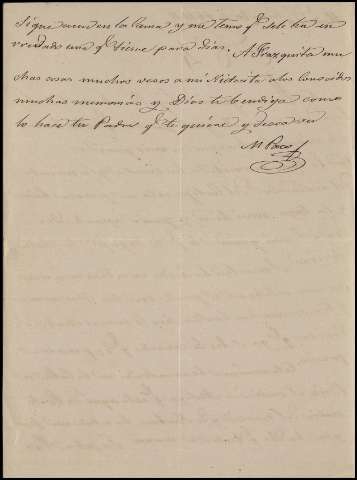 Sigue aun en la Cama y me temo q̃ se le ha en
redado una q̃ tiene para dias. A Frazquita mu
chas cosas muchos vesos a mi Nietecita a los Conocidos
muchas memorias y Dios te bendiga como
lo hace tu Padre q̃ te quiere y desea ver
M Paco